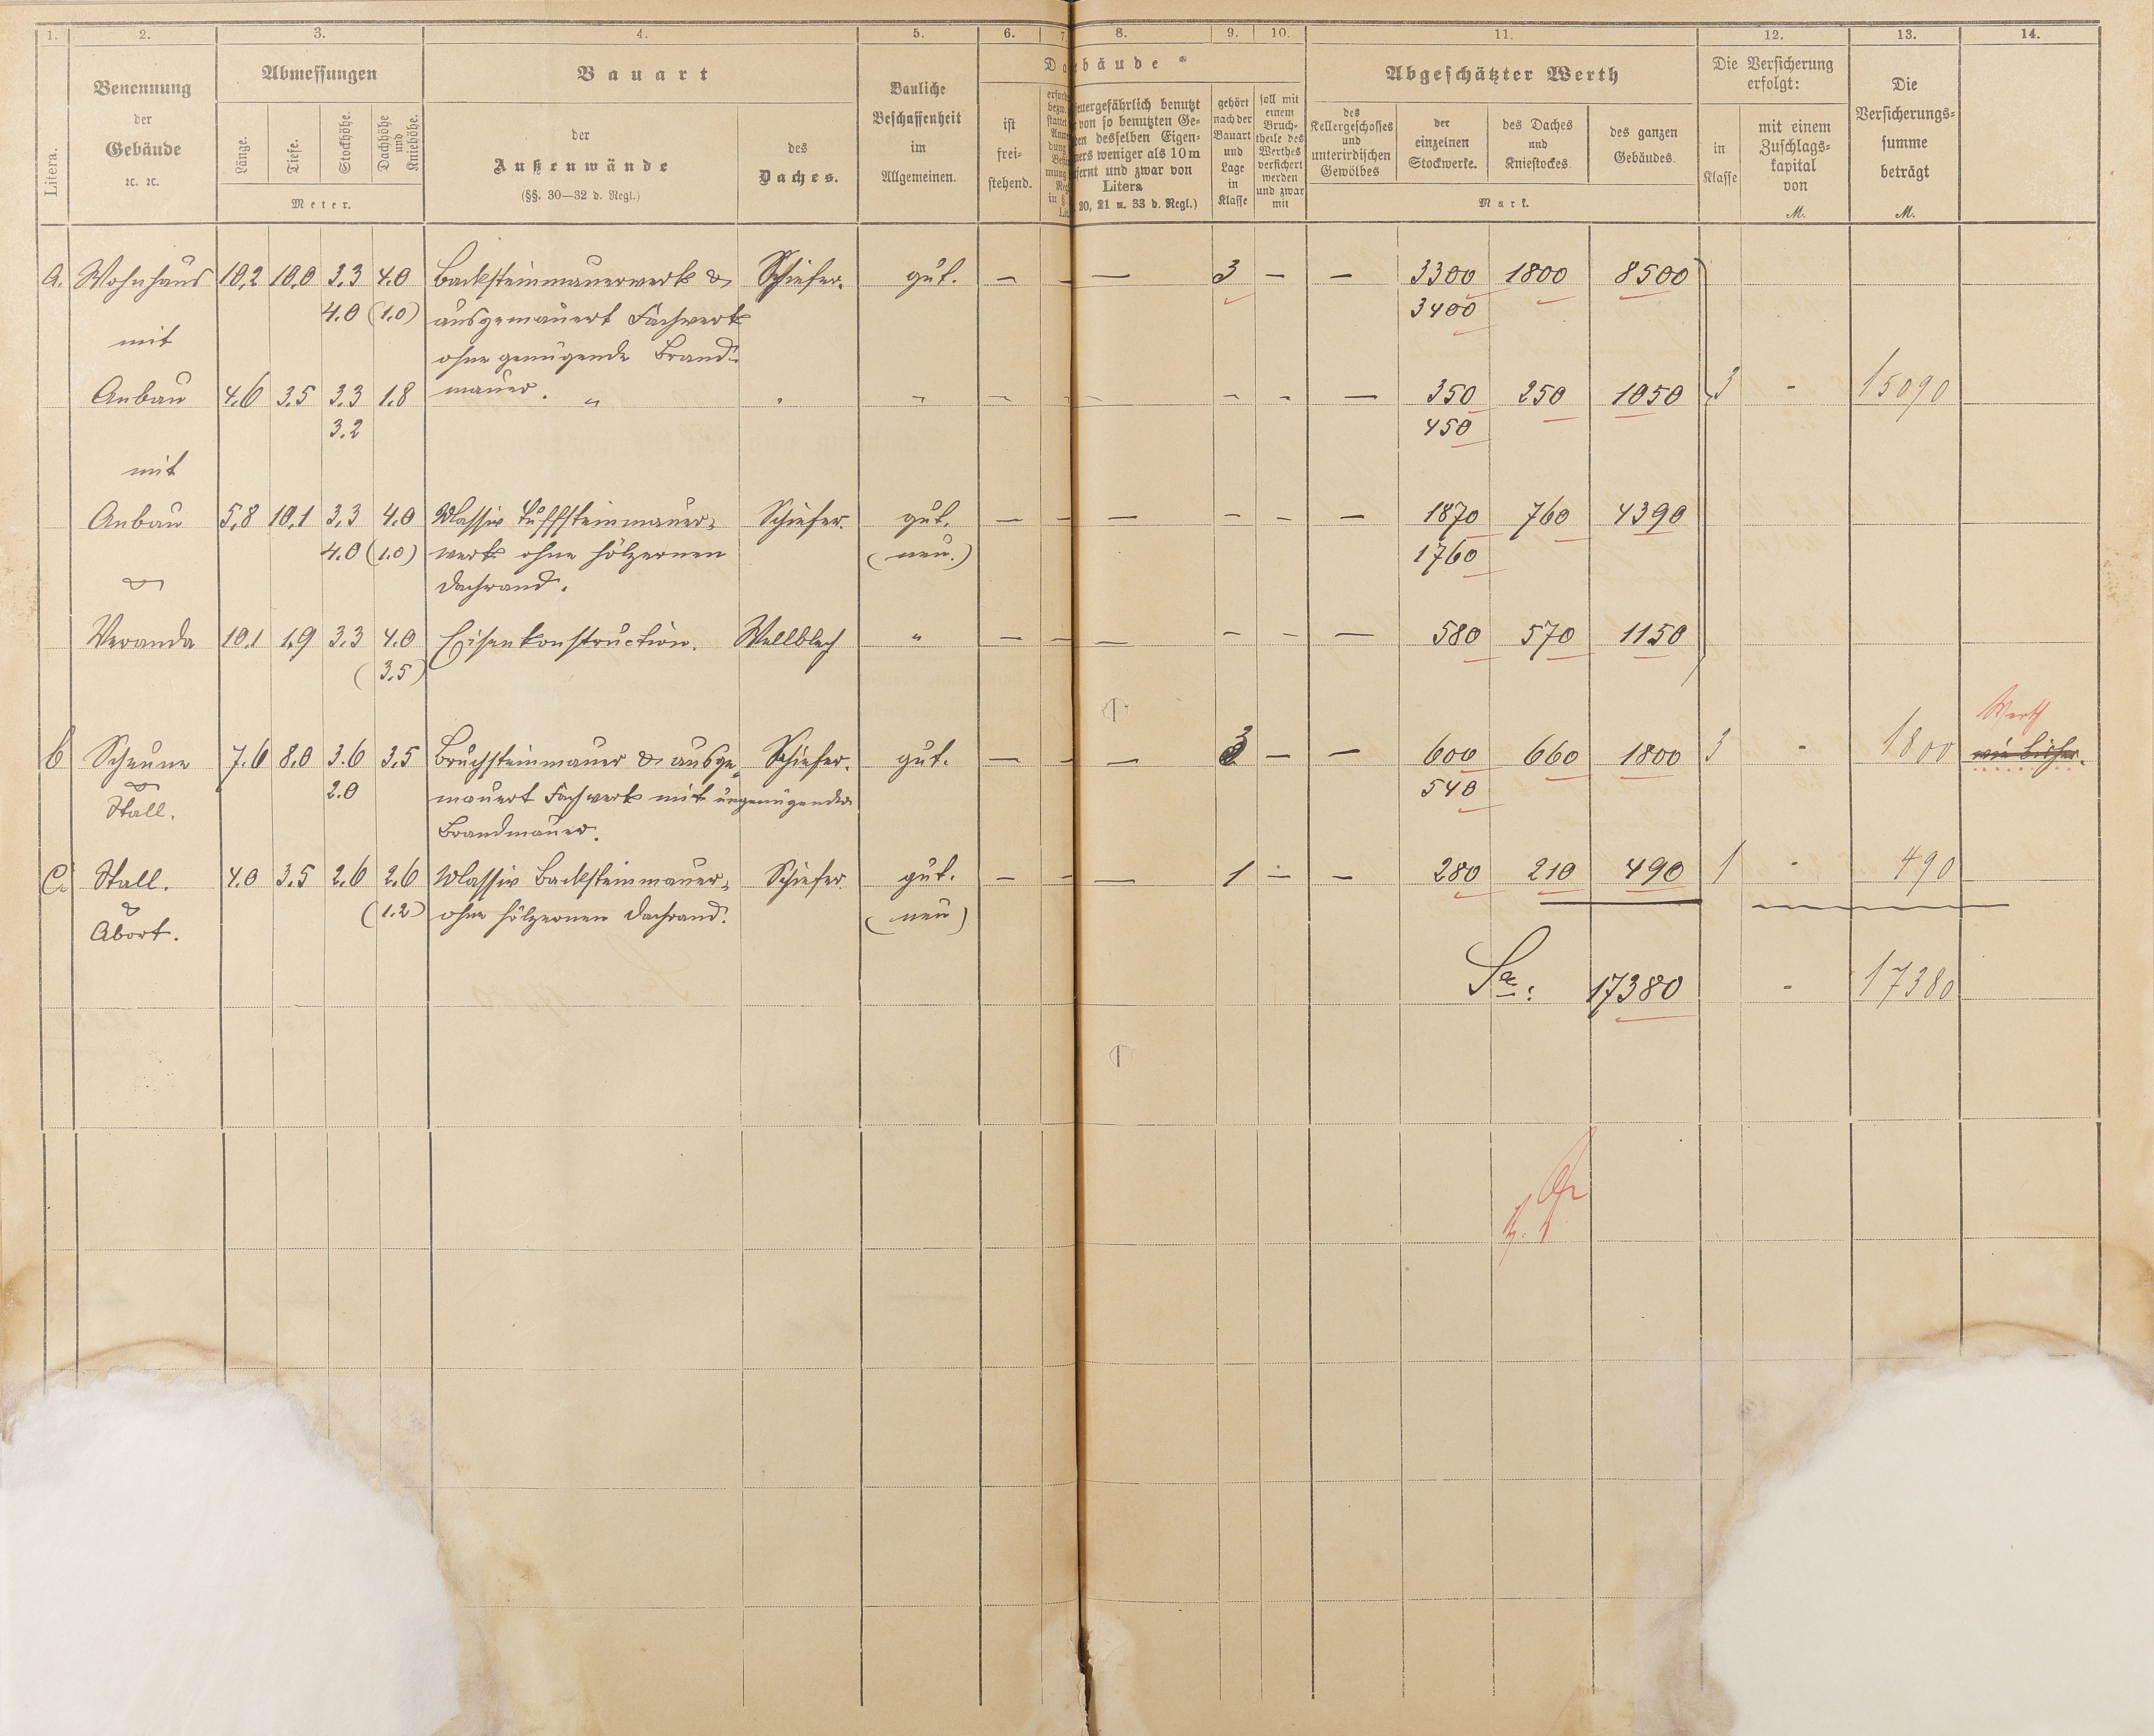 1. 2. 3. 4. 5. 6. 7. 8. 9. 10. 11. 12. 13. 14.
Litera.
Benennung
der
Gebäude
ꝛc. ꝛc.
Abmessungen
Länge.
Tiefe.
Stockhöhe.
Dachhöhe
und
Kniehöhe.
Meter.
Bauart
der
Außenwände
(§§. 30—32 d. Regl.)
des
Daches.
Bauliche
Beschaffenheit
im
Allgemeinen.
bäude
ist
frei-
stehend.
feuergefährlich benutzt
von so benutzten Ge-
den desselben Eigen-
mers weniger als 10 m
fernt und zwar von
Litera
20, 21 u. 33 d. Regl.)
gehört
nach der
Bauart
und
Lage
in
Klasse
soll mit
einem
Bruch-
theile des
Werthes
versichert
werden
und zwar
mit
Abgeschätzter Werth
des
Kellergeschosses
und
unterirdischen
Gewölbes
der
einzelnen
Stockwerke.
des Daches
und
Kniestockes.
des ganzen
Gebäudes.
Mark.
Die Versicherung
erfolgt:
in
Klasse
mit einem
Zuschlags-
kapital
von
M.
Die
Versicherungs-
summe
beträgt
M.
a. Wohnhaus 10,2 10,0 3.3 4.0 Backsteinmauerwerk & Schiefer. gut. — — — 3 — — 3300 1800 8500
4.0 (1.0) ausgemauert Fachwerk 3400
mit
ohne genügende Brand-
mauer.
Anbau 4.6 3.5 3.3 1.8 " " " — — — — — — 350 250 1050 3 - 15090
3.2 450
mit
Anbau 5,8 10,1 3,3 4.0 Massiv Tuffsteinmauer- Schiefer. gut. — — — — — — 1870 760 4390
4.0 (1.0) werk ohne hölzernen (neu.) 1760
& Dachrand.
Veranda 10.1 1.9 3.3 4.0 Eisenkonstruction. Wellblech " — — — — — — 580 570 1150
(3.5)
Werth
b Scheune 7.6 8.0 3.6 3,5 Bruchsteinmauer & ausge- Schiefer. gut. — — — 3 — — 600 660 1800 3 - 1800 wie bisher.
& 2.0 mauert Fachwerk mit ungenügender 540
Stall. Brandmauer.
C. Stall. 4.0 3,5 2.6 2.6 Massiv Backsteinmauer- Schiefer. gut. — — — 1 — — 280 210 490 1 - 490
& (1.2) ohne hölzernen Dachrand. (neu)
Abort.
Sa: 17380 - 17380